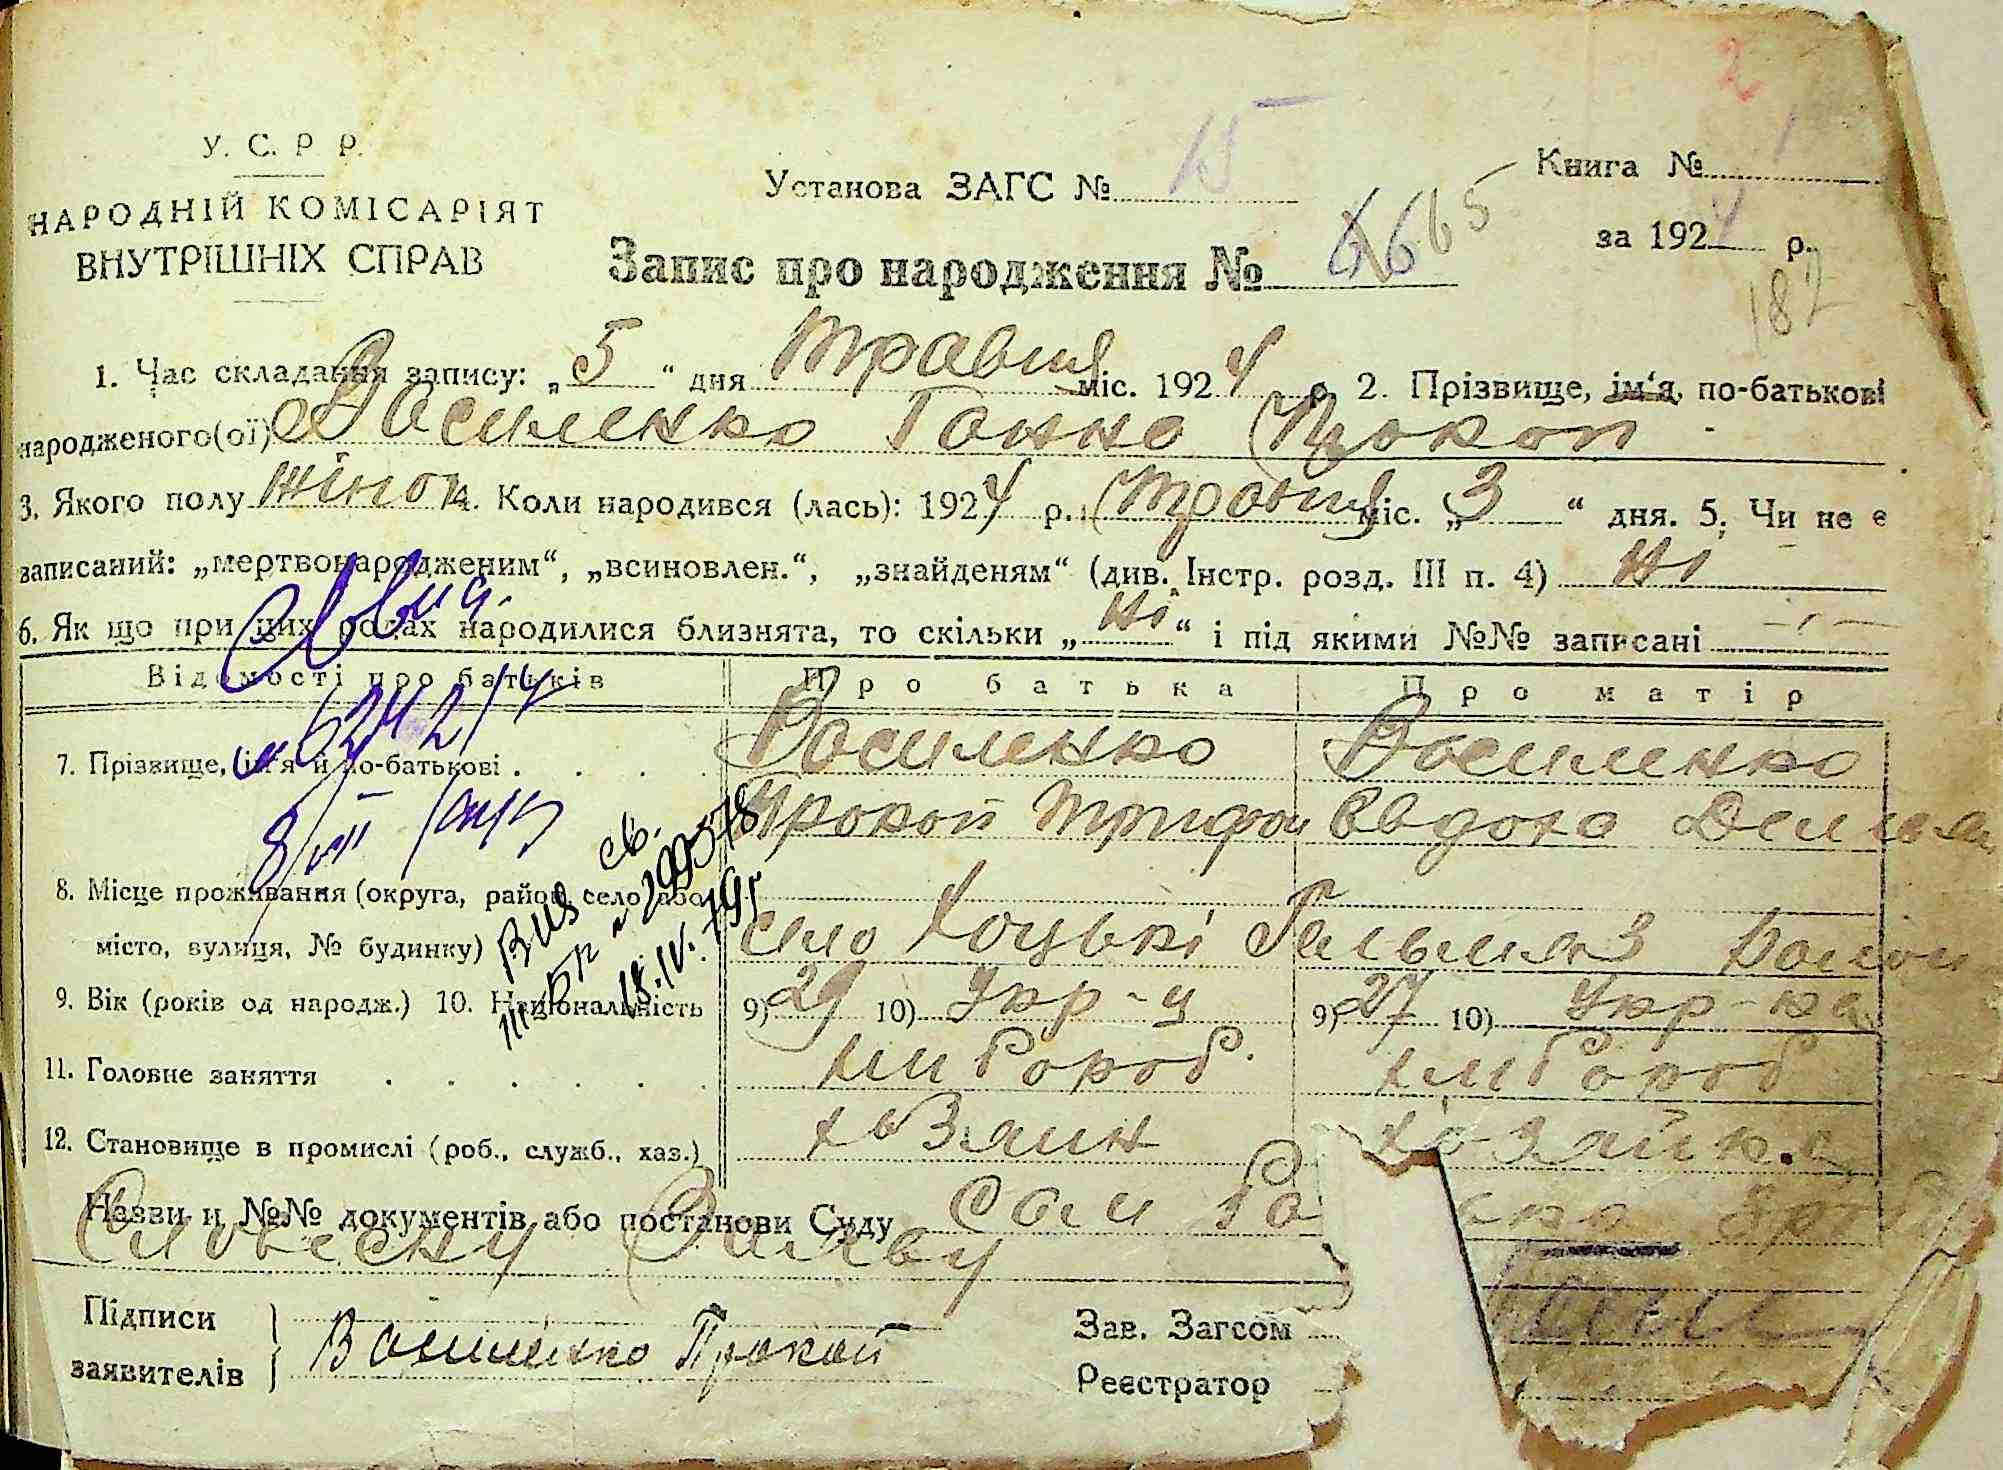 2
У. С. Р Р.
НАРОДНІЙ КОМІСАРІЯТ
ВНУТРІШНІХ СПРАВ
Установа ЗАГС № 15
Книга № 1
за 1924 р.
Запис про народження № 65
187
1. Час складання запису: „5“ дня травня міс. 1924 р. 2. Прізвище, ім‘я, по-батькові
народженого(ої) Василенко Ганна Прокоп
3. Якого полу жіноч 4. Коли народився (лась): 1924 р. травня міс. „3“ дня. 5. Чи не є
записаний: „мертвонародженим“, „всиновлен.“, „знайденям“ (див. Інстр. розд. III п. 4) Ні
6. Як що при цих родах народилися близнята, то скільки „Ні“ і під якими №№ записані
Відомості про батьків Про батька Про матір
7. Прізвище, ім‘я й по-батькові . . . . Василенко Василенко
Прокоп Трифон Євдоха
8. Місце проживання (округа, район, село або
місто, вулиця, № будинку) село Хоцькі Гельмяз
9. Вік (років од народж.) 10. Національність 9) 29 10) Укр-ц 9) 27 10) Укр-ка
11. Головне заняття . . . . . . хлібороб. хлібороб
12. Становище в промислі (роб., служб., хаз.) хозяин хозяйка
Назви и №№ документів або постанови Суду
Словесну Заяву
Підписи
заявителів
Василенко Прокоп
Зав. Загсом
Реєстратор
18.IV.